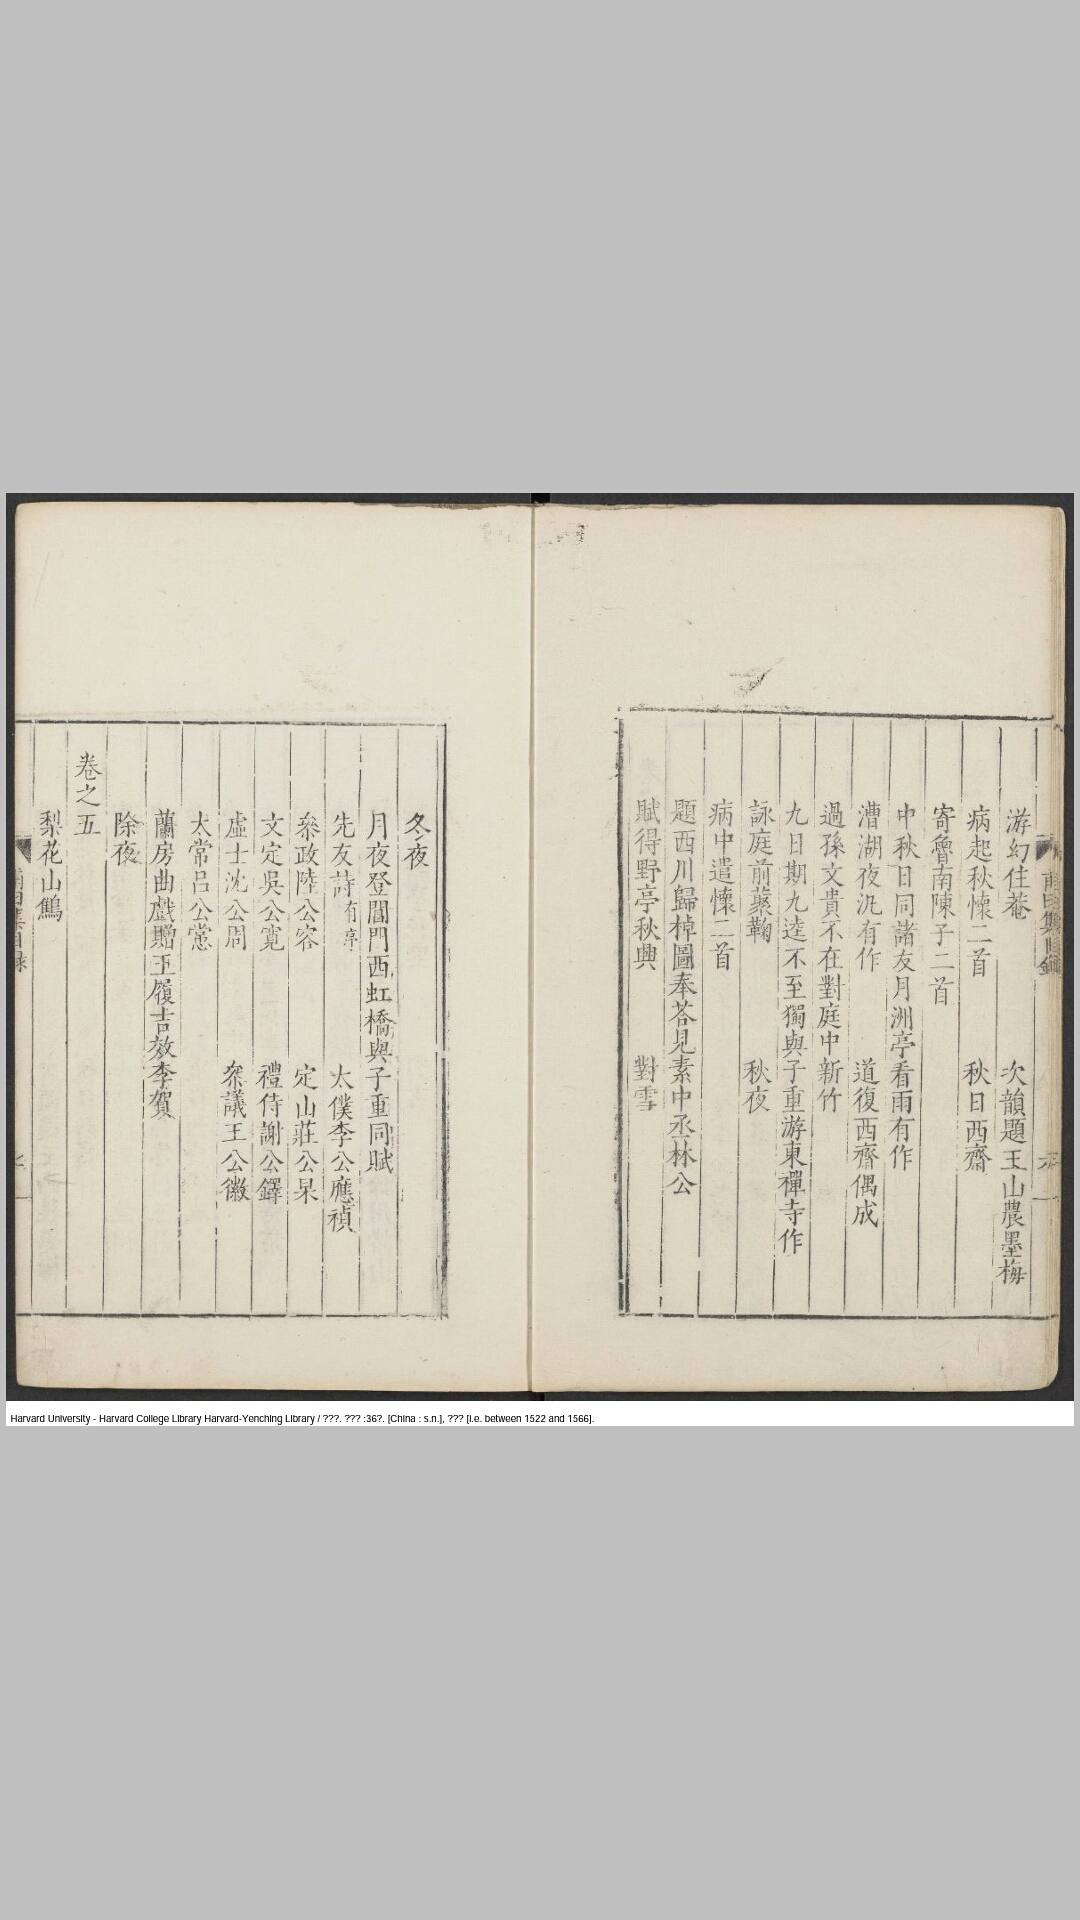 甫田集目錄
游幻住菴　次韻題王山農墨梅
病起秋懷二首　秋日西齋
寄魯南陳子二首
中秋日同諸友月洲亭看雨有作
漕湖夜汎有作　道復西齋偶成
過孫文貴不在對庭中新竹
九日期九逵不至獨與子重游東禪寺作
詠庭前藂鞠　秋夜
病中遣懷二首
題西川歸棹圖奉荅見素中丞林公
賦得野亭秋興　對雪
冬夜
月夜登閶門西虹橋與子重同賦
先友詩有序　太僕李公應禎
叅政陸公容　定山莊公杲
文定吳公寬　禮侍謝公鐸
處士沈公周　叅議王公徽
太常呂公㦂
蘭房曲戲贈王履吉效李賀
除夜
卷之五
梨花山鷓
甫田集目錄
Harvard University - Harvard College Library Harvard-Yenching Library / ???. ??? :36?. [China : s.n.], ??? [i.e. between 1522 and 1566].